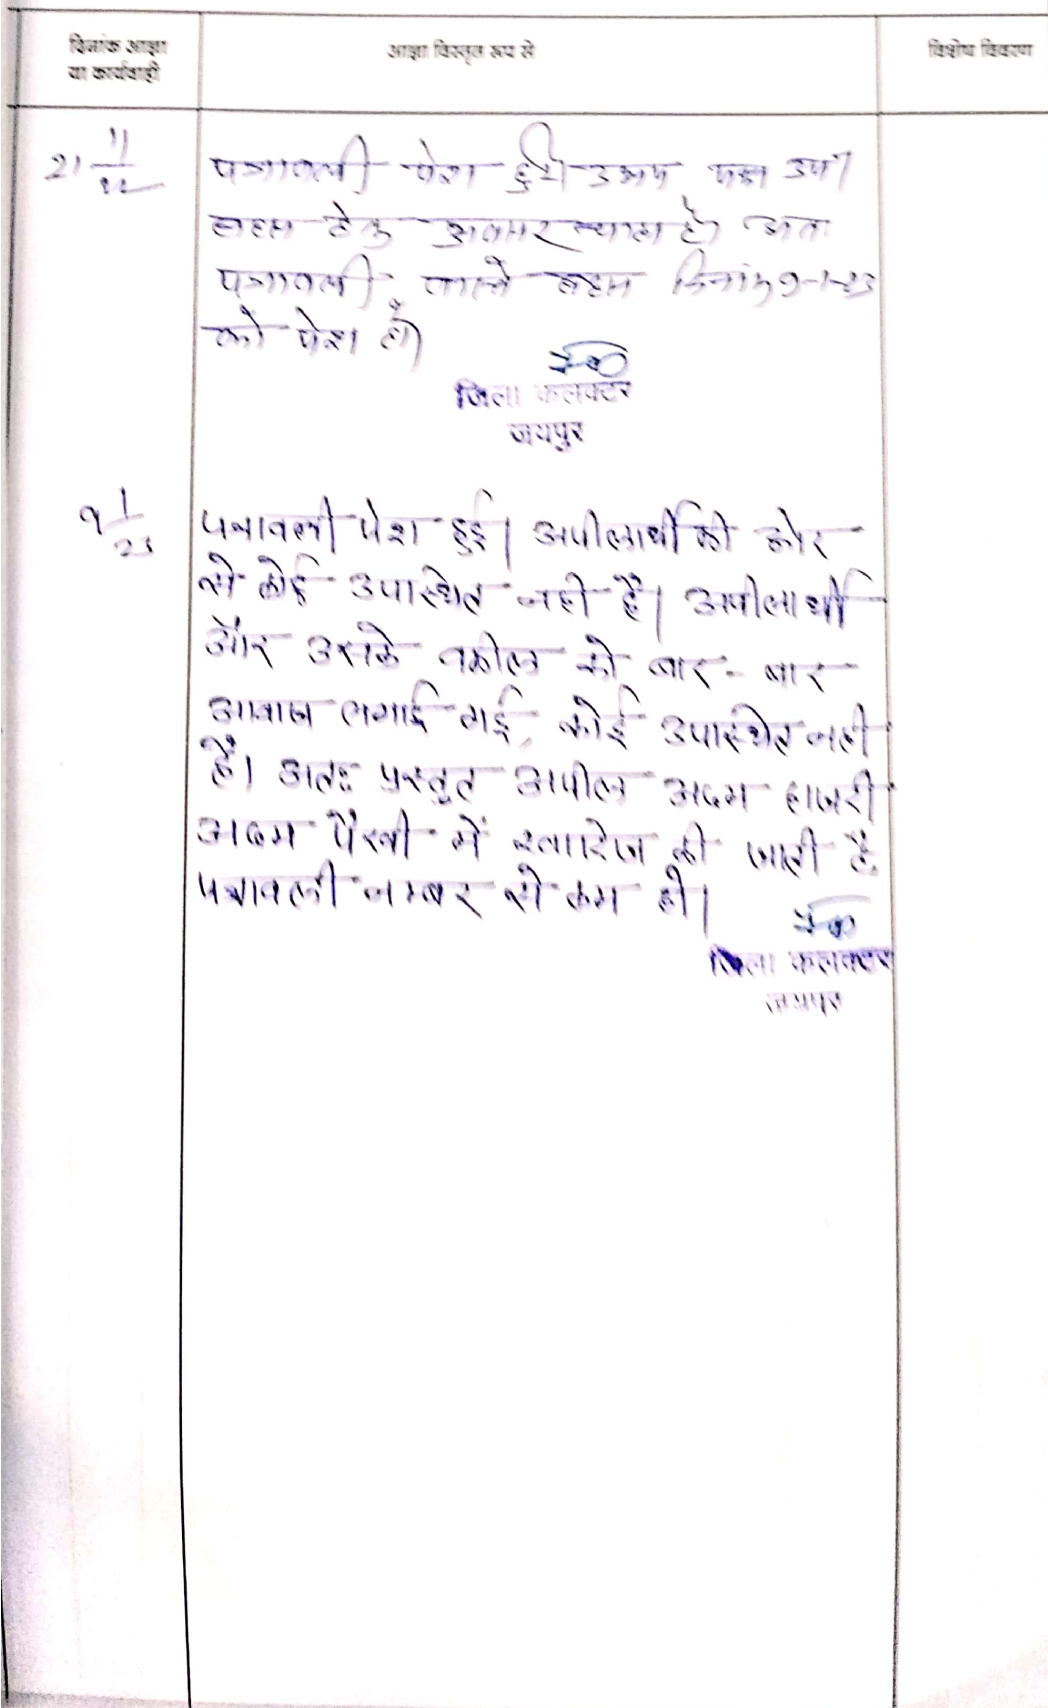 दिनांक आज्ञा
या कार्यवाही
आज्ञा विस्तृत रूप से
विशेष विवरण
21 11/22
पत्रावली पेश हुई। उभय पक्ष उप।
बहस हेतु अवसर चाहा है। अतः
पत्रावली वास्ते बहस दिनांक 9-1-23
को पेश हो।
जिला कलक्टर
जयपुर
9 1/23
पत्रावली पेश हुई। अपीलार्थी की ओर
से कोई उपस्थित नही है। अपीलार्थी
और उसके वकील को बार-बार
आवाज लगाई गई, कोई उपस्थित नही
है। अतः प्रस्तुत अपील अदम हाजरी
अदम पैरवी में खारिज की जाती है,
पत्रावली नम्बर से कम हो।
जिला कलक्टर
जयपुर